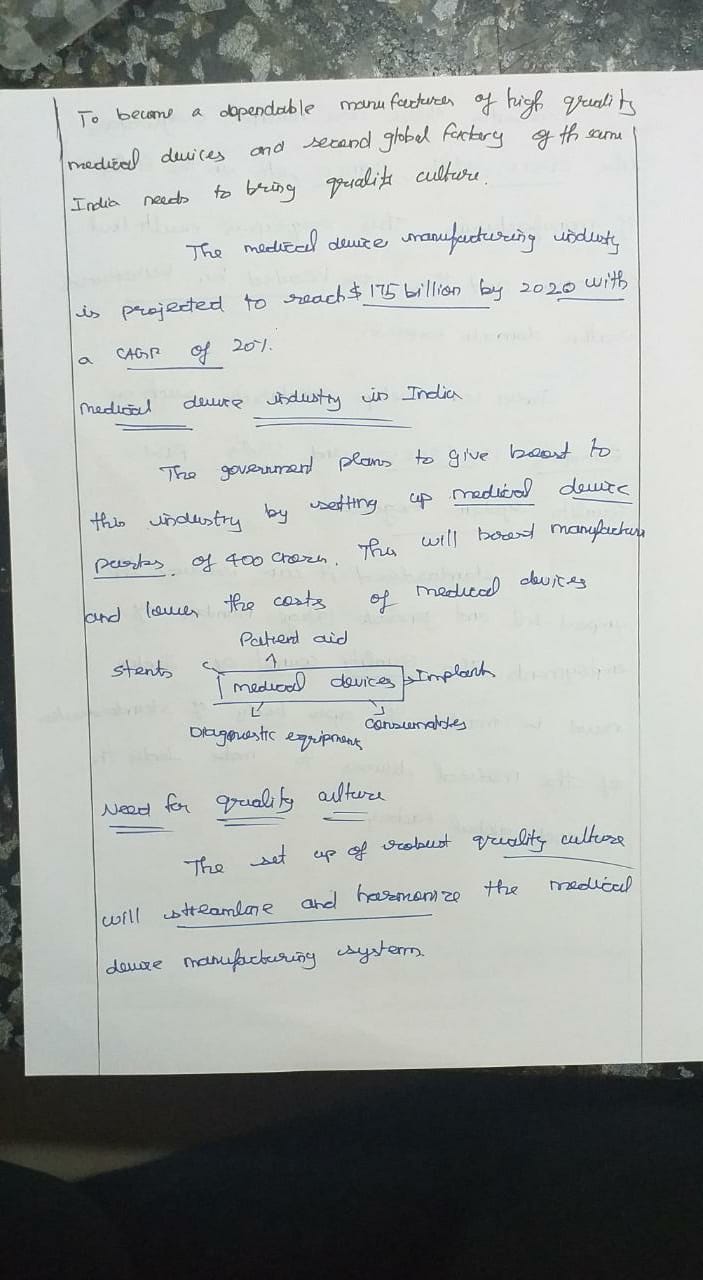 To become a dependable manufacturer of high quality
medical devices and second global factory of th same
India needs to bring quality culture.
The medical device manufacturing industy
is projected to reach $ 175 billion by 2020 with
a CAGR of 20%.
medical device industry in India
The government plans to give boost to
this industry by setting up medical device
parks. of 400 crores. This will boost manufacture
and lower the costs of medical devices
Patient aid
stents
medical devices
Implants
Diagonestic equipment
consumables
Need for quality culture
The set up of robust quality culture
will streamline and harmonize the medical
device manufacturing system.